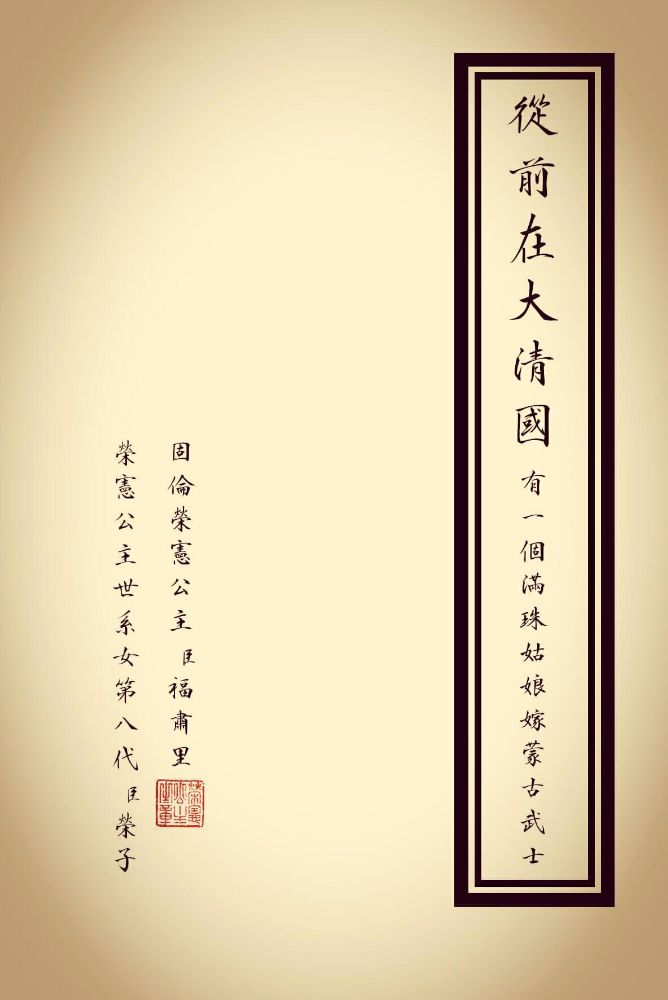 從前在大清國有一個滿珠姑娘嫁蒙古武士
固倫榮憲公主臣福肅里
榮憲公主世系女第八代臣榮子